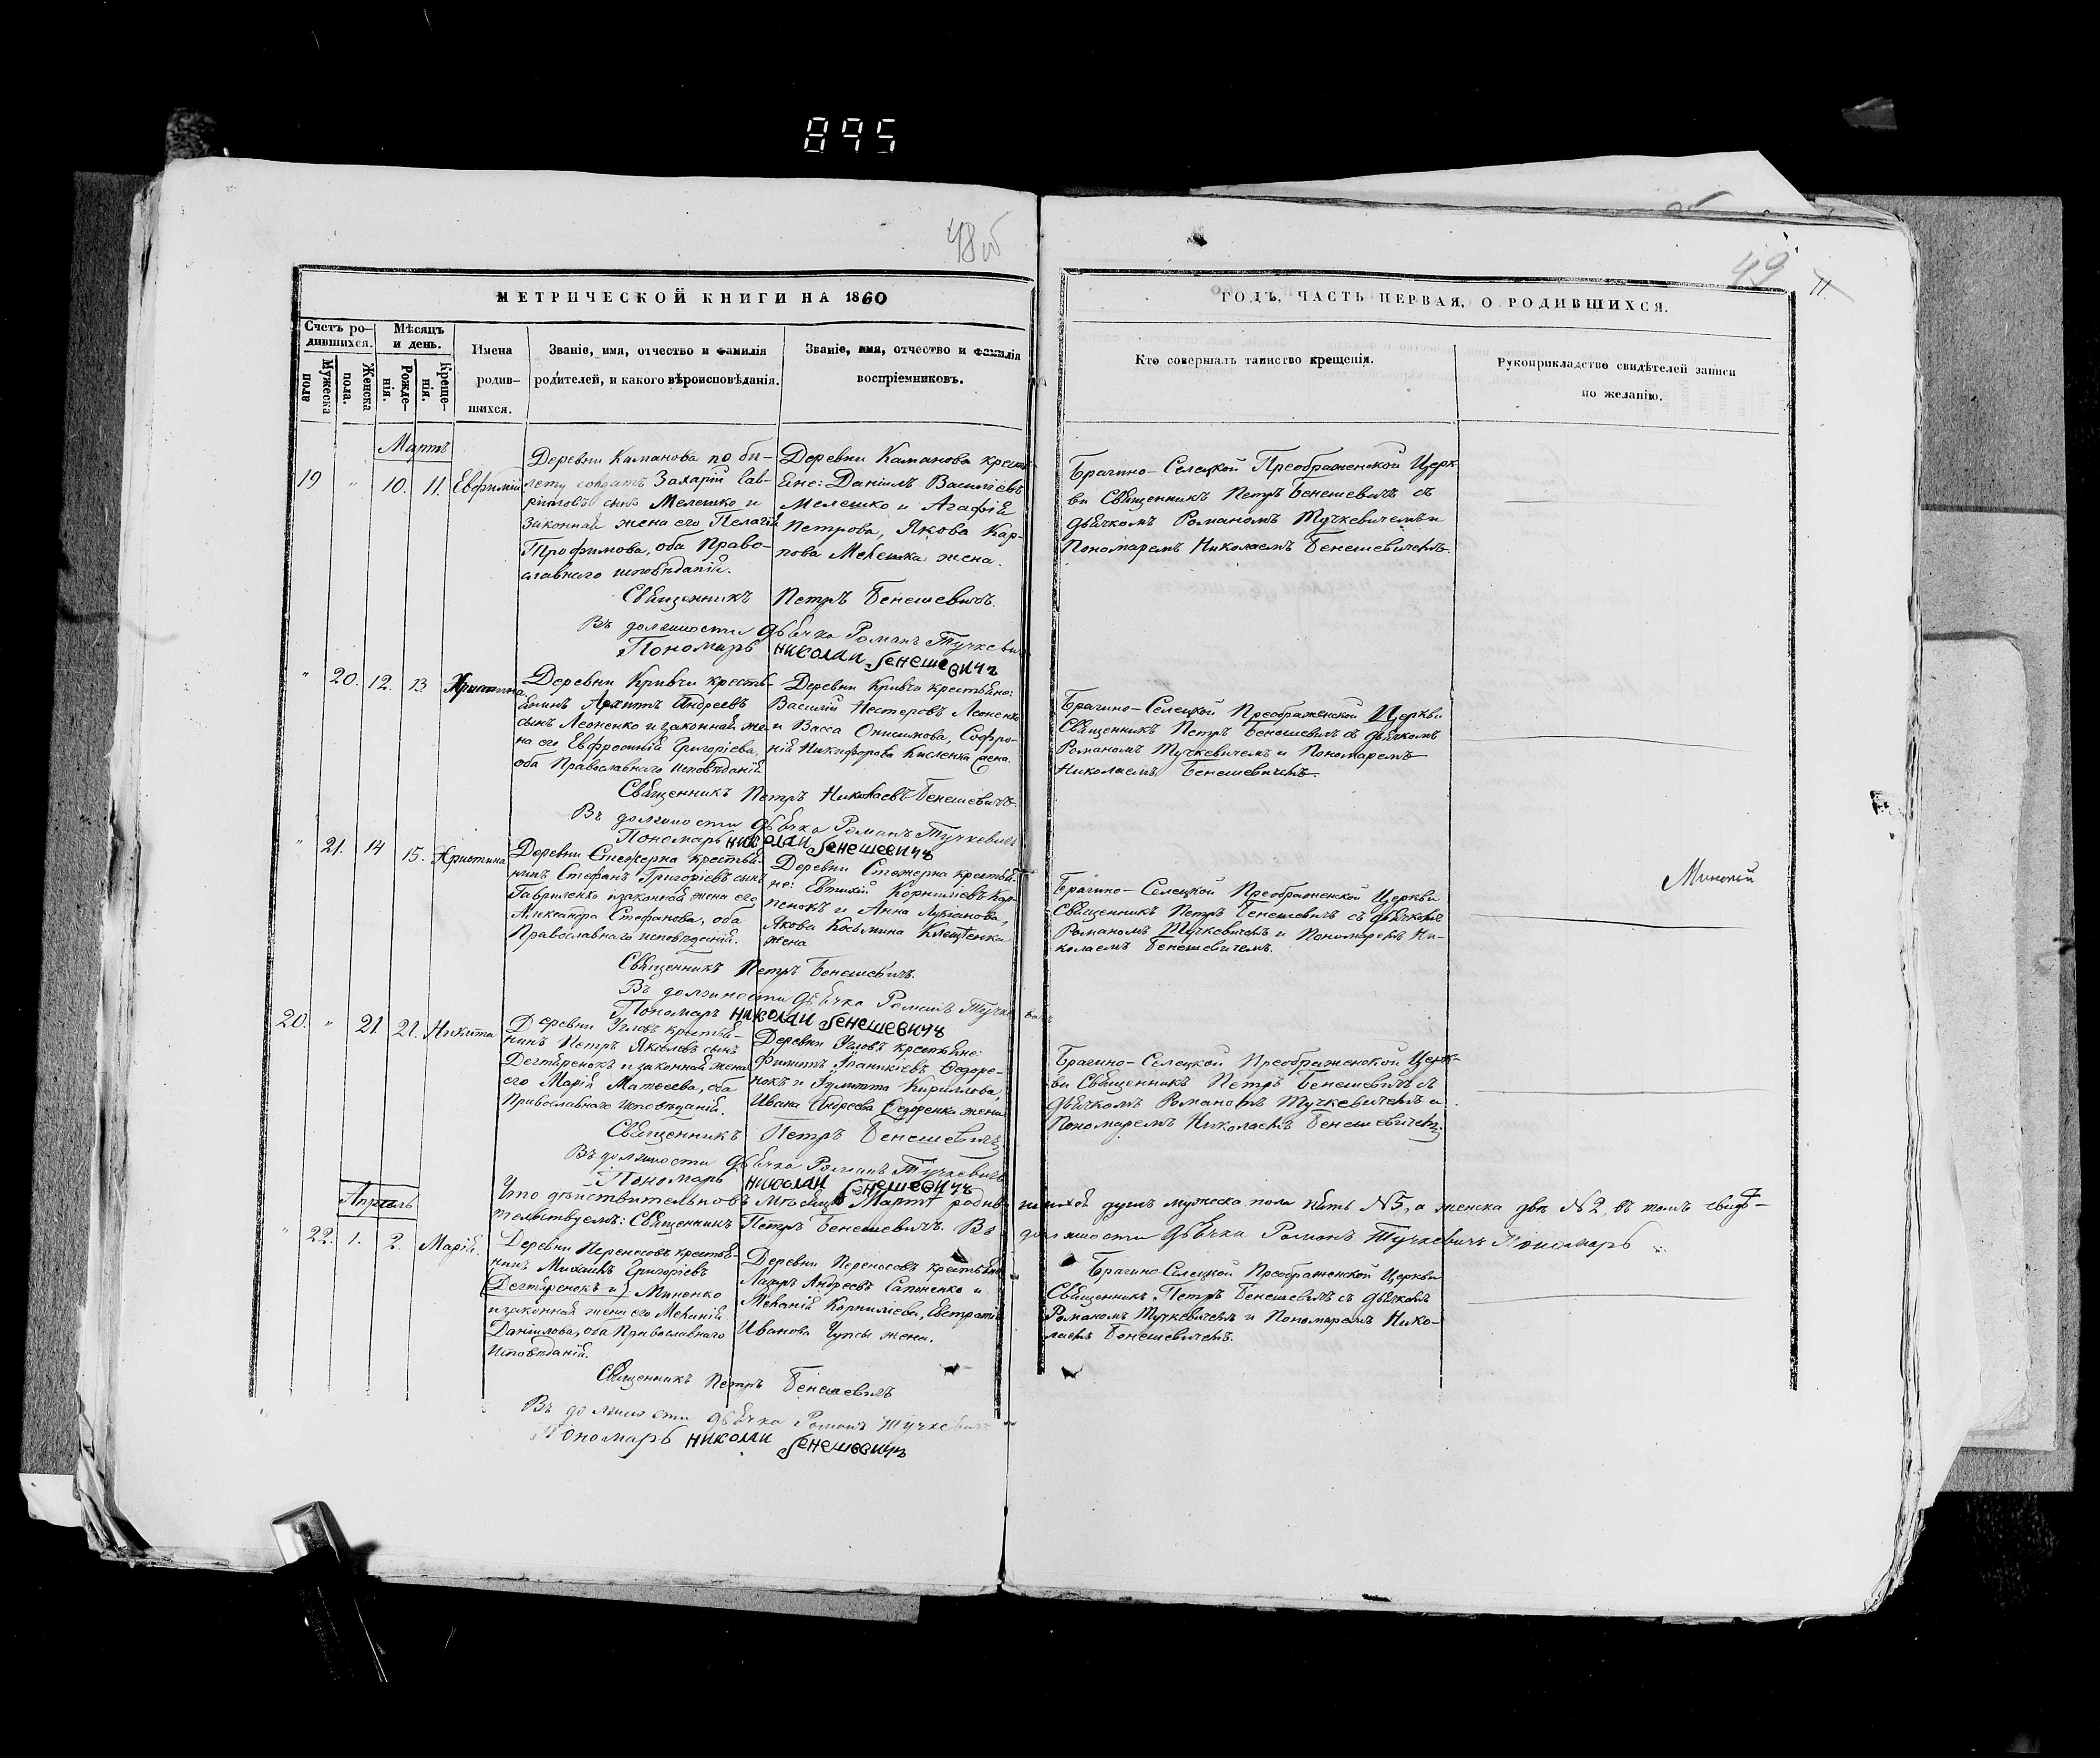 895
48 об
49
МЕТРИЧЕСКОЙ КНИГИ НА 1860
ГОДЪ, ЧАСТЬ ПЕРВАЯ, О РОДИВШИХСЯ.
Счетъ ро-
дившихся.
Мужеска
пола
Женска
пола.
Мѣсяцъ
и день.
Рожде-
нія.
Креще-
нія.
Имена
родив-
шихся.
Званіе, имя, отчество и фамилія
родителей, и какого вѣроисповѣданія.
Званіе, имя, отчество и фамилія
воспріемниковъ.
Кто совершалъ таинство крещенія.
Рукоприкладство свидѣтелей записи
по желанію.
Мартъ
19 " 10. 11. Евфимій
Деревни Каманова по би-
лету солдатъ Захарій Гав-
риловъ сынъ Мелешко и
законная жена его Пелагія
Трофимова, оба Право-
славнаго исповѣданія.
Деревни Каманова кресть-
яне: Даніилъ Василіевъ
Мелешко и Агафія
Петрова, Якова Кар-
пова Мелешка жена.
Брагино-Селецкой Преображенской Церк-
ви Священникъ Петръ Бенешевичъ съ
дьячкомъ Романомъ Тучкевичемъ и
Пономаремъ Николаемъ Бенешевичемъ.
Священникъ Петръ Бенешевичъ.
Въ должности дьячка Романъ Тучкевичъ
Пономарь Николай Бенешевичъ
" 20. 12. 13. Христина
Деревни Кривчи кресть-
янинъ Архипъ Андреевъ
сынъ Леоненко и законная же-
на его Евфросинія Григоріева,
оба Православнаго исповѣданія.
Деревни Кривчи крестьяне:
Василій Нестеровъ Леоненко
и Васса Онисимова, Софро-
нія Никифорова Кисленка жена.
Брагино-Селецкой Преображенской Церкви
Священникъ Петръ Бенешевичъ съ дьячкомъ
Романомъ Тучкевичемъ и Пономаремъ
Николаемъ Бенешевичемъ.
Священникъ Петръ Николаевъ Бенешевичъ.
Въ должности дьячка Романъ Тучкевичъ
Пономарь Николай Бенешевичъ
" 21. 14 15. Христина
Деревни Стежерна крестья-
нинъ Стефанъ Григоріевъ сынъ
Гавриленко и законная жена его
Александра Стефанова, оба
Православнаго исповѣданія.
Деревни Стежерна крестья-
не: Евтихій Корниліевъ Кар-
пенокъ и Анна Лукіанова,
Якова Косьмина
жена
Брагино-Селецкой Преображенской Церкви
Священникъ Петръ Бенешевичъ съ дьячкомъ
Романомъ Тучкевичемъ и Пономаремъ Ни-
колаемъ Бенешевичемъ.
Священникъ Петръ Бенешевичъ.
Въ должности дьячка Романъ Тучкевичъ
Пономарь Николай Бенешевичъ
20. " 21 21. Никита
Деревни Угловъ крестья-
нинъ Петръ Яковлевъ сынъ
Дегтяренокъ и законная жена
его Марія Матвеева, оба
Православнаго исповѣданія.
Деревни Угловъ крестьяне:
Филиппъ Іоанникіевъ Ѳедоре-
нокъ и Кириллова,
Ивана Андреева Ѳедоренка жена
Брагино-Селецкой Преображенской Церк-
ви Священникъ Петръ Бенешевичъ съ
дьячкомъ Романомъ Тучкевичемъ и
Пономаремъ Николаемъ Бенешевичемъ.
Священникъ Петръ Бенешевичъ
Въ должности дьячка Романъ Тучкевичъ
Пономарь Николай Бенешевичъ
Что дѣйствительно въ мѣсяцѣ Мартѣ родив-шихся душъ мужеска пола пять №5, а женска двѣ №2, въ томъ свидѣ-
тельствуемъ: Священникъ Петръ Бенешевичъ. Въ должности дьячка Романъ Тучкевичъ Пономарь
Апрѣль
" 22. 1. 2. Марія.
Деревни Переносовъ крестья-
нинъ Михаилъ Григоріевъ
(Дегтяренокъ и) Миненко
и законная жена его Меланія
Даніилова, оба Православнаго
исповѣданія.
Деревни Переносовъ крестьяне
Лазарь Андреевъ Сапоненко и
Меланія Корниліева, Евстратія
Иванова Чупы жена.
Брагино-Селецкой Преображенской Церкви
Священникъ Петръ Бенешевичъ съ дьячкомъ
Романомъ Тучкевичемъ и Пономаремъ Нико-
лаемъ Бенешевичемъ.
Священникъ Петръ Бенешевичъ
Въ должности дьячка Романъ Тучкевичъ
Пономарь Николай Бенешевичъ